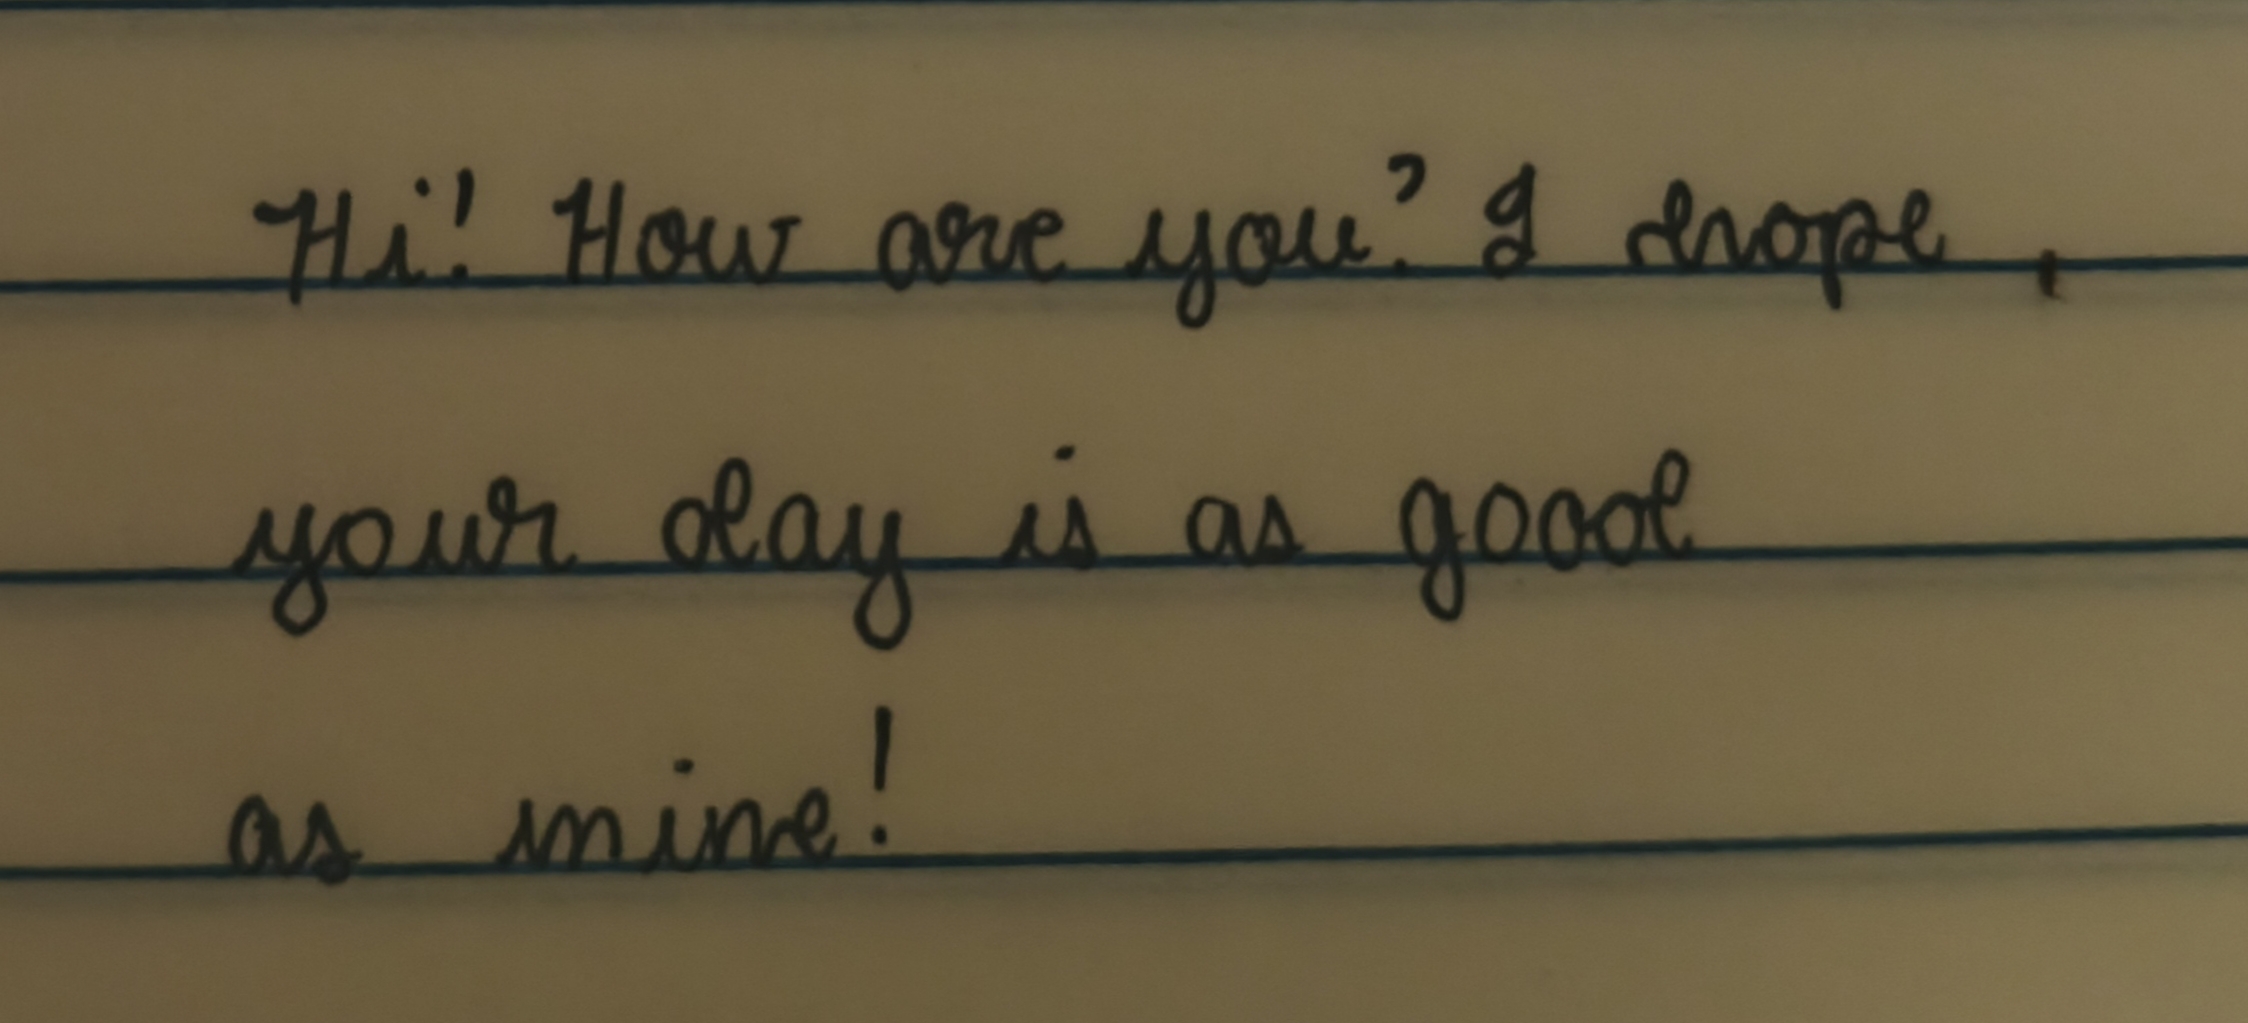 Hi! How are you? I hope,
your day is as good
as mine!